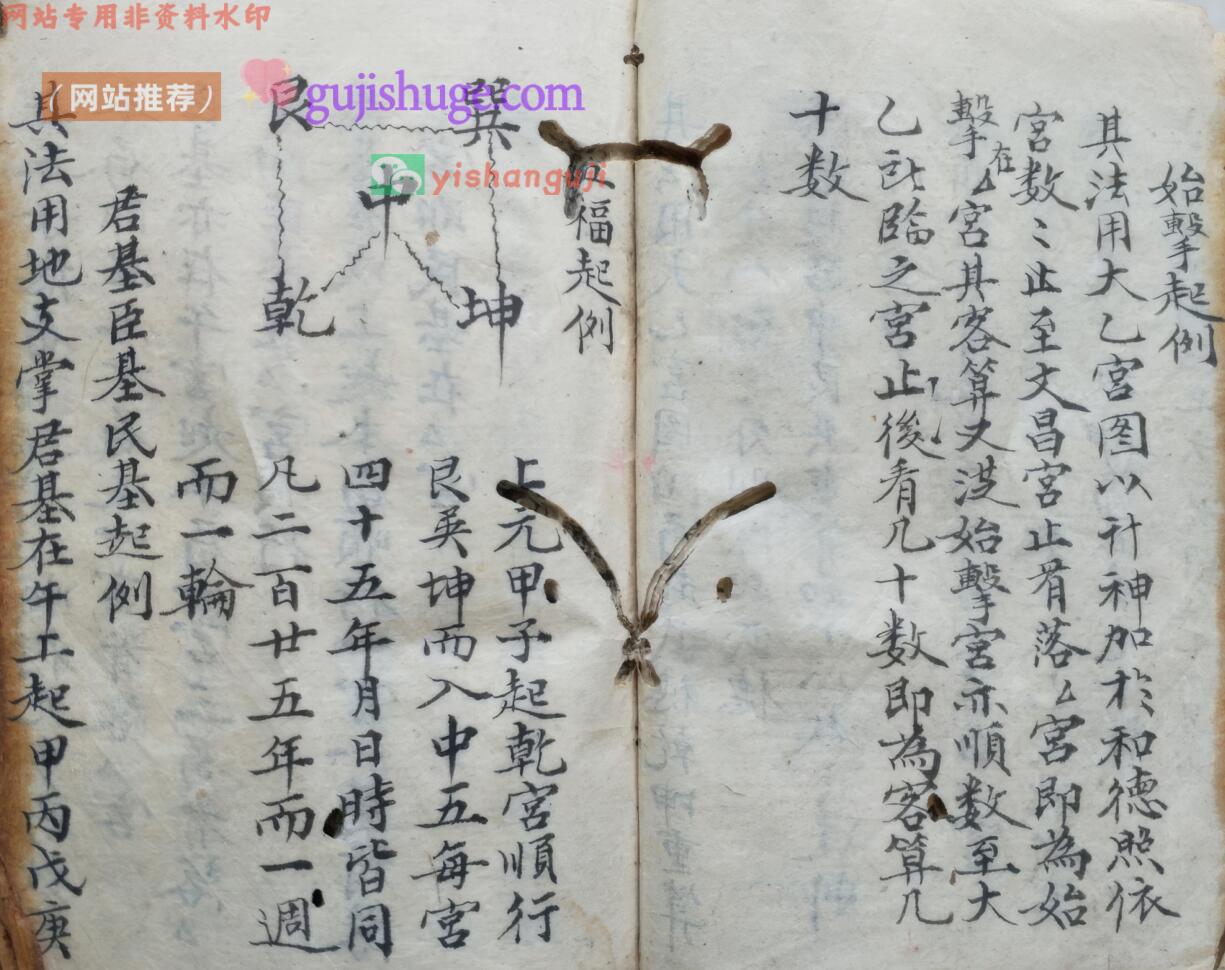 网站专用非资料水印
(网站推荐)
gujishuge.com
yishanguji
始擊起例
其法用大乙宮图以计神加於和德照依
宮数〻止至文昌宮止看落厶宮即為始
擊在厶宮其客算又従始擊宮亦順数至大
乙所臨之宮止後看几十数即為客算几
十数
福起例
巽
艮
中
坤
乾
上元甲子起乾宮順行
艮巽坤而入中五每宮
四十五年月日時皆同
凡二百廿五年而一週
而一輪
君基臣基民基起例
其法用地支掌君基在午上起甲丙戊庚